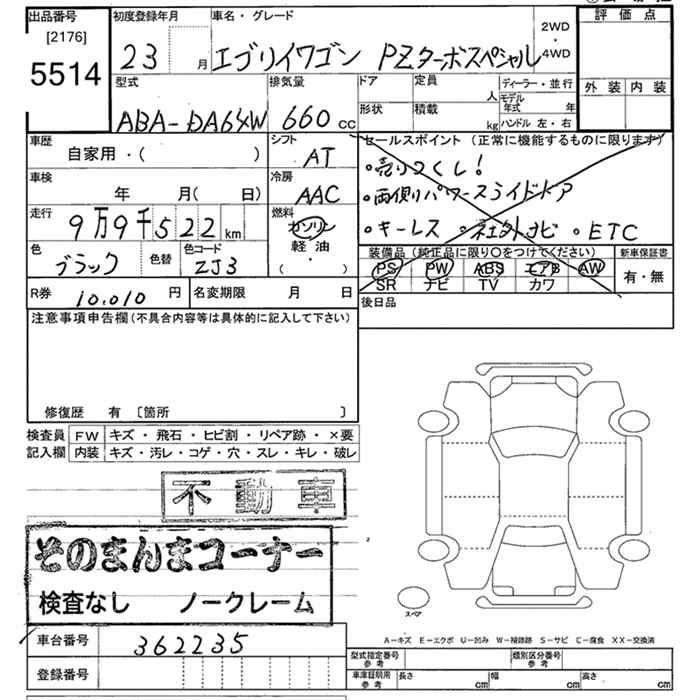 出品番号 初度登録年月 車名・グレード 評価点
[2176]
5514
23 月 エブリイワゴン PZターボスペシャル 2WD・4WD
型式 排気量 ドア 定員 人 ディーラー・並行 外装 内装
ABA-DA64W 660cc 形状 積載 kg モデル年式 年
ハンドル 左・右
車歴 シフト セールスポイント(正常に機能するものに限ります)
自家用・( ) AT ・売りつくし!
車検 冷房 ・両側パワースライドドア
年 月(日) AAC
走行 燃料 ・キーレス ・社外ナビ ・ETC
9万9千522km ガソリン
軽油
・
( )
色 色替 色コード 装備品(純正品に限り○をつけてください) 新車保証書
ブラック ZJ3 PS PW ABS エアB AW 有・無
SR ナビ TV カワ
R券 10,010円 名変期限 月 日 後日品
注意事項申告欄(不具合内容等は具体的に記入して下さい)
修復歴 有 [箇所 ]
検査員 FW キズ・飛石・ヒビ割・リペア跡・×要
記入欄 内装 キズ・汚レ・コゲ・穴・スレ・キレ・破レ
不動車
そのまんまコーナー
検査なし ノークレーム
スペア
A-キズ E-エクボ U-凹み W-補修跡 S-サビ C-腐食 XX-交換済
車台番号 362235
型式指定番号 参考 類別区分番号 参考
登録番号
車庫証明用 参考 長さ cm 幅 cm 高さ cm